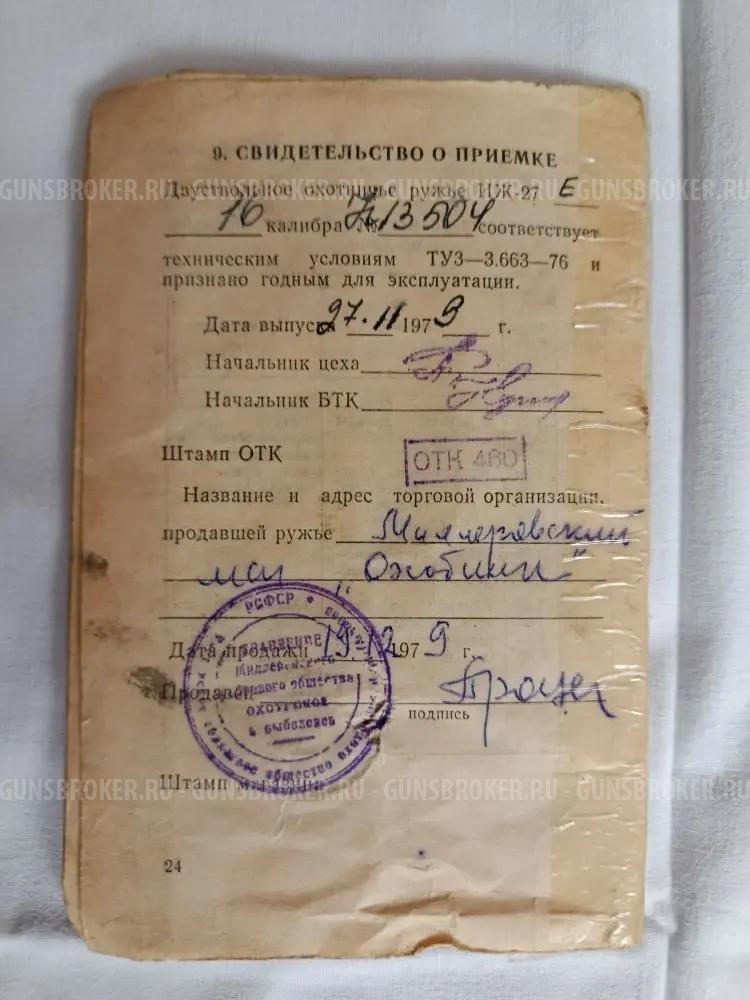 9. СВИДЕТЕЛЬСТВО О ПРИЕМКЕ
GUNSBROKER.RU - GUNSBROKER.RU - GUNSBROKER.RU - GUNSBROKER.RU
Двуствольное охотничье ружье ИЖ-27 Е
16 калибра № 13504 соответствует
техническим условиям ТУ3—3.663—76 и
признано годным для эксплуатации.
Дата выпуска 27.11 1979 г.
Начальник цеха
Начальник БТК
Штамп ОТК
ОТК 460
Название и адрес торговой организации,
продавшей ружье Миллеровский
маг „Охотник"
РСФСР
Дата продажи 19.12 1979 г.
ПРАВЛЕНИЕ
Миллеровского
общества
ОХОТНИКОВ
и рыболовов
Продавец
подпись
общество
Штамп магазина
GUNSBROKER.RU - GUNSBROKER.RU - GUNSBROKER.RU - GUNSBROKER.RU
24